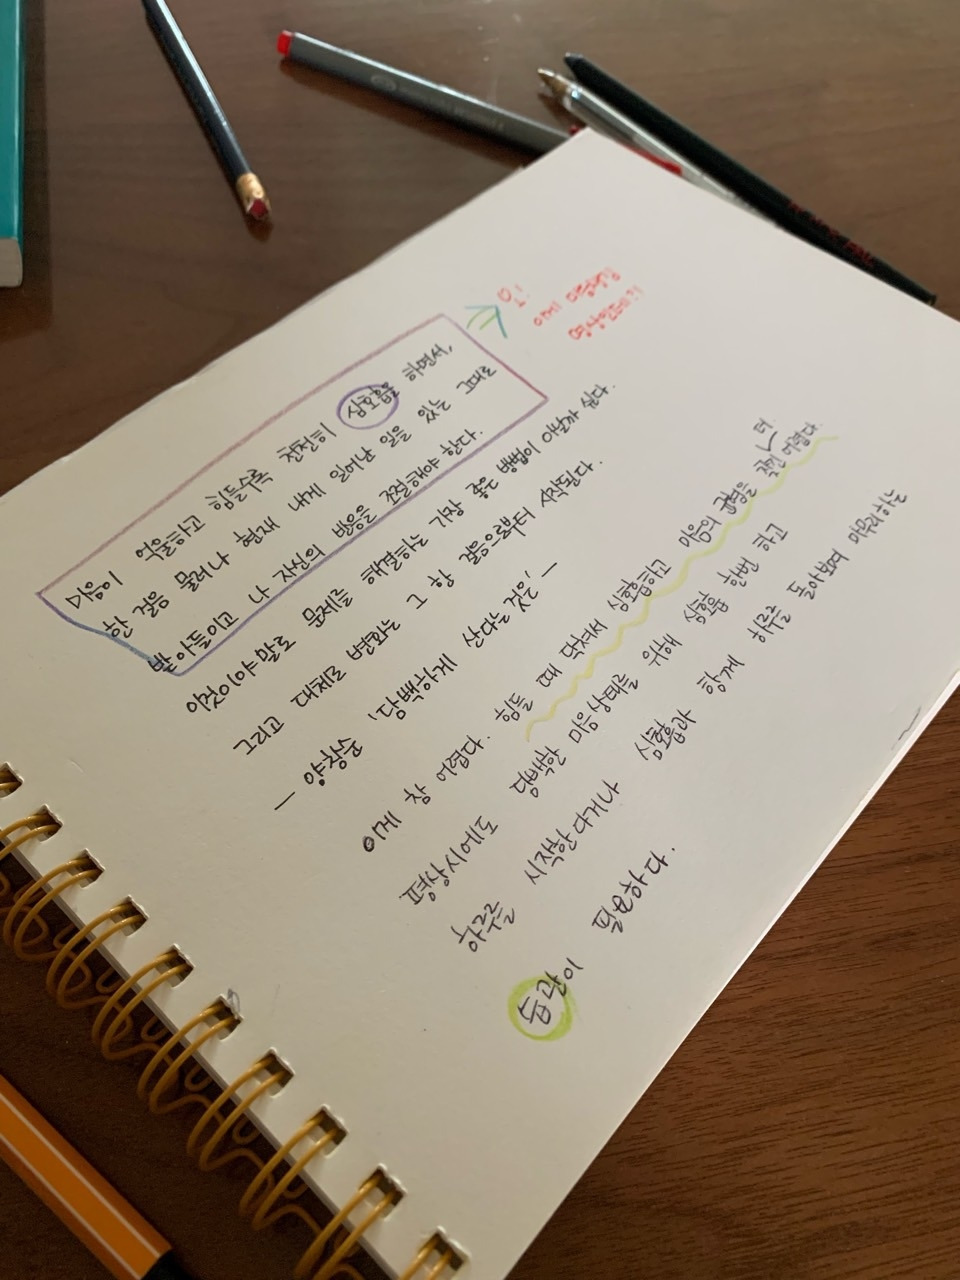 마음이 억울하고 힘들수록 천천히 심호흡을 하면서,
한 걸음 물러나 현재 내게 일어난 일을 있는 그대로
받아들이고 나 자신의 반응을 조절해야 한다.
이것이야말로 문제를 해결하는 가장 좋은 방법이 아닐까 싶다.
그리고 대체로 변화는 그 한 걸음으로부터 시작된다.
— 양창순 '담백하게 산다는 것' —
이게 참 어렵다. 힘들 때 닥쳐서 심호흡하고 마음의 균형을 찾긴 더 어렵다
평상시에도 담백한 마음상태를 위해 심호흡 한번 하고
하루를 시작한다거나 심호흡과 함께 하루를 돌아보며 마무리하는
습관이 필요하다.